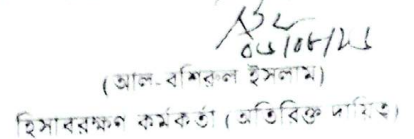 (আল-বশিরুল ইসলাম)
হিসাবরক্ষণ কর্মকর্তা (অতিরিক্ত দায়িত্ব)